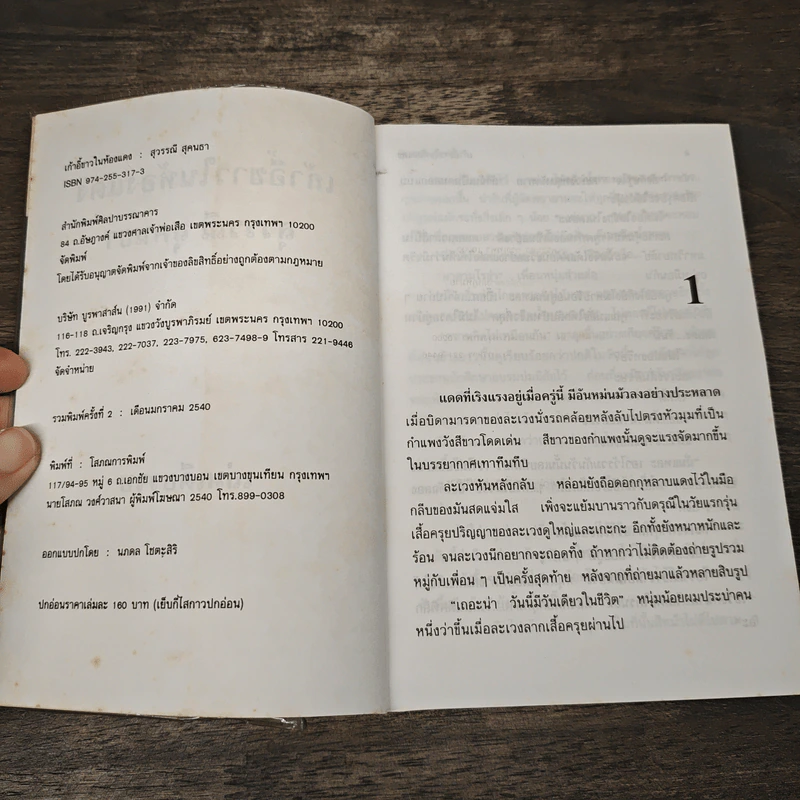 เก้าอี้ขาวในห้องแดง : สุวรรณี สุคนธา
ISBN 974-255-317-3
สำนักพิมพ์ศิลปาบรรณาคาร
84 ถ.อัษฎางค์ แขวงศาลเจ้าพ่อเสือ เขตพระนคร กรุงเทพฯ 10200
จัดพิมพ์
โดยได้รับอนุญาตจัดพิมพ์จากเจ้าของลิขสิทธิ์อย่างถูกต้องตามกฎหมาย
บริษัท บูรพาสาส์น (1991) จำกัด
116-118 ถ.เจริญกรุง แขวงวังบูรพาภิรมย์ เขตพระนคร กรุงเทพฯ 10200
โทร. 222-3943, 222-7037, 223-7975, 623-7498-9 โทรสาร 221-9446
จัดจำหน่าย
รวมพิมพ์ครั้งที่ 2 : เดือนมกราคม 2540
พิมพ์ที่ : โสภณการพิมพ์
117/94-95 หมู่ 6 ถ.เอกชัย แขวงบางบอน เขตบางขุนเทียน กรุงเทพฯ
นายโสภณ วงศ์วาสนา ผู้พิมพ์โฆษณา 2540 โทร.899-0308
ออกแบบปกโดย : นภดล โชตะสิริ
ปกอ่อนราคาเล่มละ 160 บาท (เย็บกี่ไสกาวปกอ่อน)
1
แดดที่เริงแรงอยู่เมื่อครู่นี้ มีอันหม่นมัวลงอย่างประหลาด
เมื่อบิดามารดาของละเวงนั่งรถคล้อยหลังลับไปตรงหัวมุมที่เป็น
กำแพงวังสีขาวโดดเด่น สีขาวของกำแพงนั้นดูจะแรงจัดมากขึ้น
ในบรรยากาศเทาทึมทึบ
ละเวงหันหลังกลับ หล่อนยังถือดอกกุหลาบแดงไว้ในมือ
กลีบของมันสดแจ่มใส เพิ่งจะแย้มบานราวกับดรุณีในวัยแรกรุ่น
เสื้อครุยปริญญาของละเวงดูใหญ่และเกะกะ อีกทั้งยังหนาหนักและ
ร้อน จนละเวงนึกอยากจะถอดทิ้ง ถ้าหากว่าไม่ติดต้องถ่ายรูปรวม
หมู่กับเพื่อน ๆ เป็นครั้งสุดท้าย หลังจากที่ถ่ายมาแล้วหลายสิบรูป
"เถอะน่า วันนี้มีวันเดียวในชีวิต" หนุ่มน้อยผมประบ่าคน
หนึ่งว่าขึ้นเมื่อละเวงลากเสื้อครุยผ่านไป